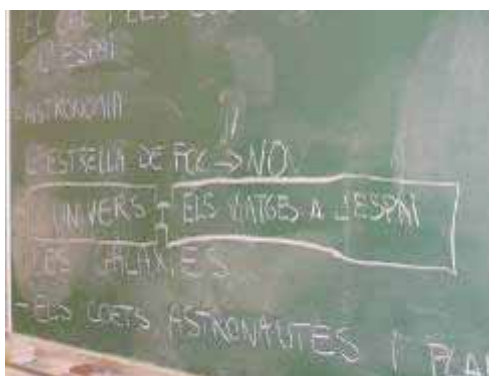 EL CEL I ELS
L'ESPAI
-ASTRONOMIA
L'ESTRELLA DE FOC → NO
L'UNIVERS I ELS VIATGES A L'ESPAI
-LES GALÀXIES
-ELS COETS ASTRONAUTES I PLAN